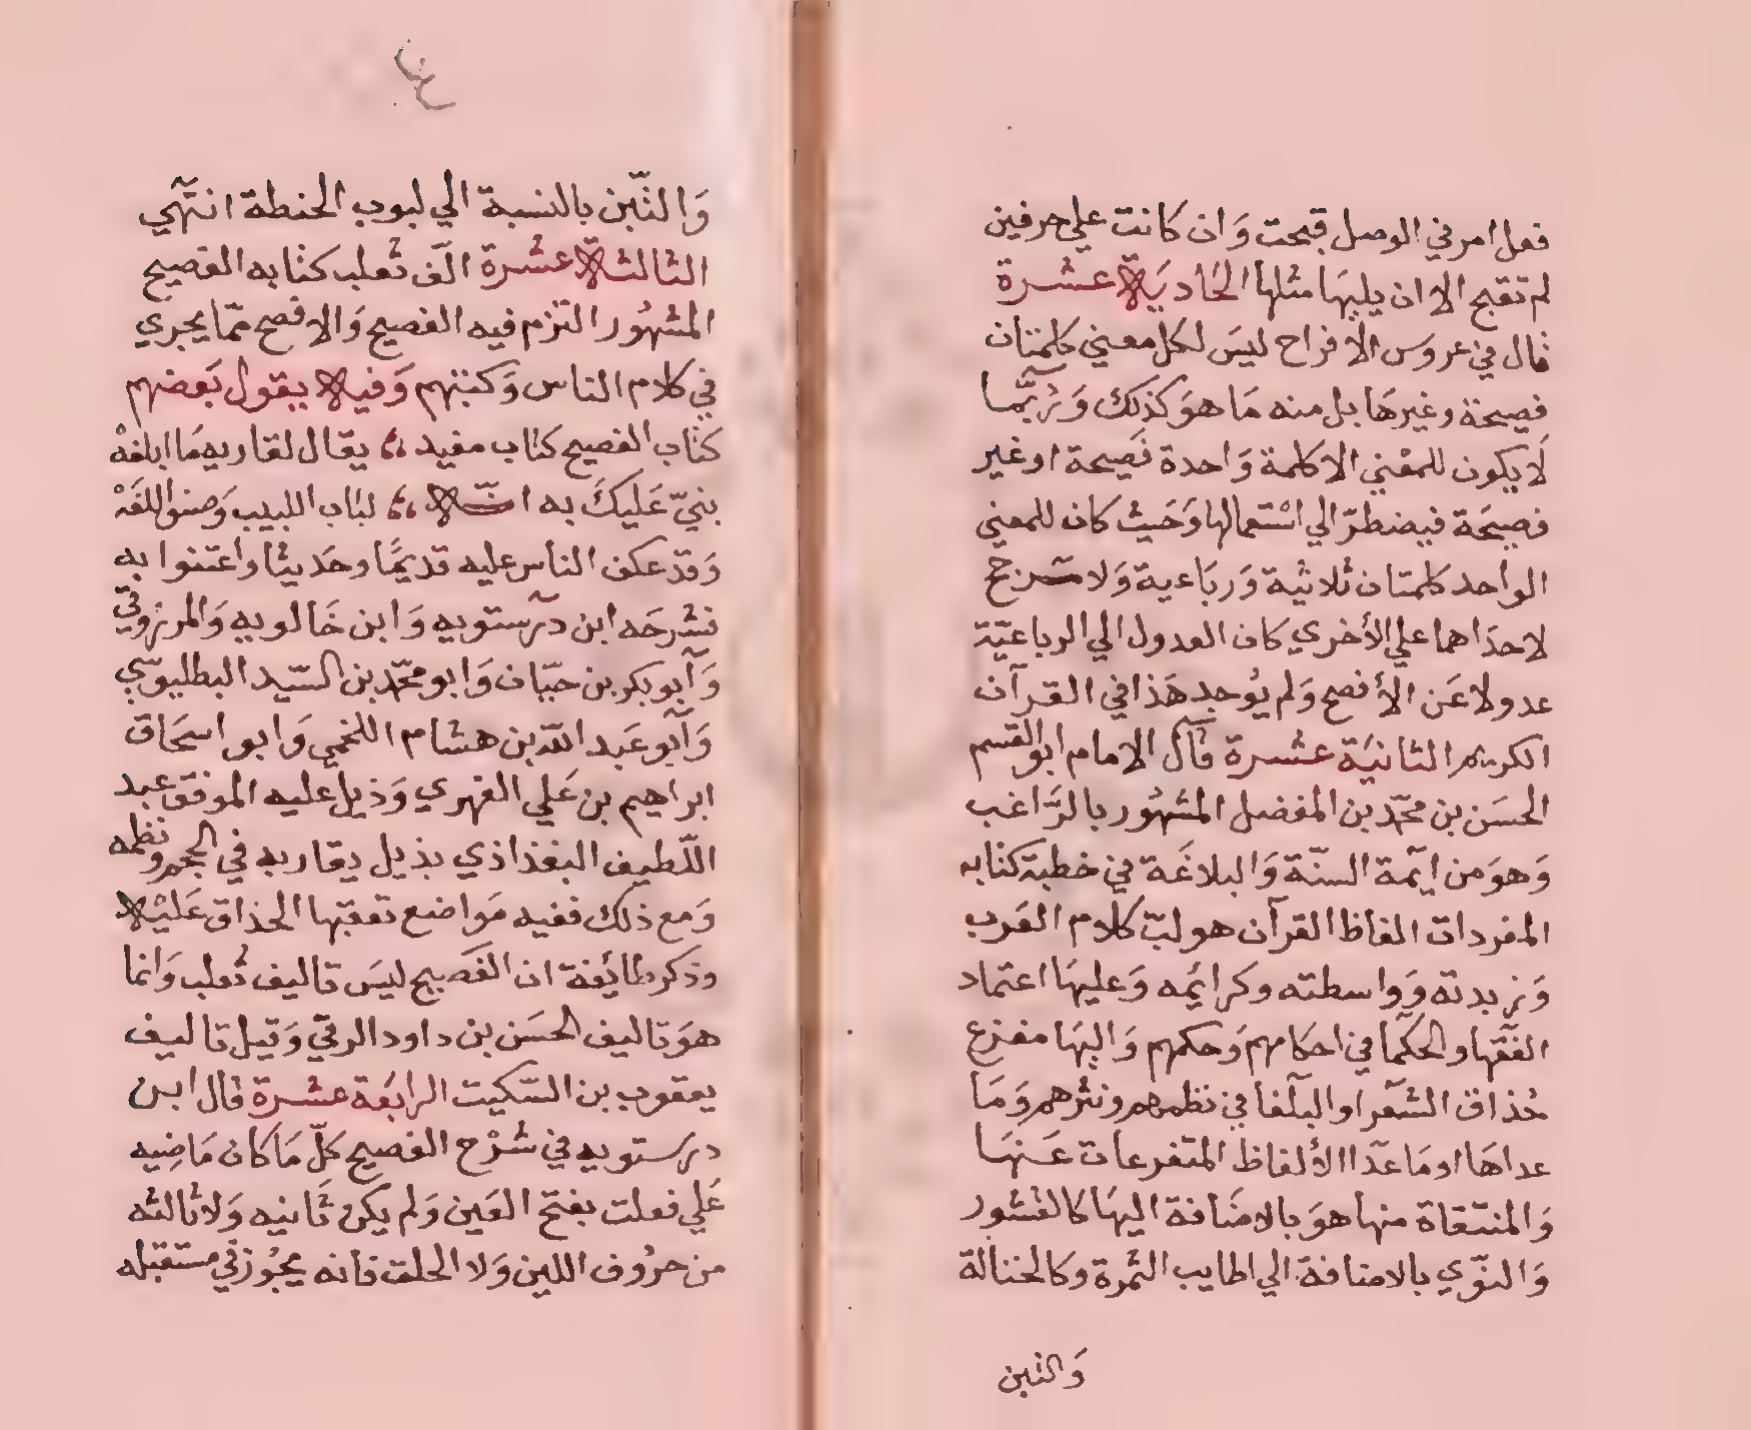 فعل امر في الوصل قبحت وَان كانت علي حرفين
لم تقبح الا ان يليهَا مثلها الحَاديَة عشرة
قال في عروس الافراح ليسَ لكل معني كلمتان
فصيحة وغيرهَا بل منه مَا هوَ كذلك وَرُبّما
لَا يكون للمعْني الا كلمة وَاحدة فَصيحة او غير
فصيحَة فيضطرّ الي اسْتعمالها وَحَيث كان للمعني
الواحد كلمتان ثلاثية وَربَاعية وَلا مرَجح
لاحدَاهما علي الأخري كان العدول الي الرباعيّة
عدولا عَن الأفصح وَلم يُوجد هَذا في القرآن
الكريم الثانيَة عشرة قال الامام ابو القسم
الحسَن بن محمّد بن المفضل المشهُور بالرَّاغب
وَهوَ من ايمّة السنّة وَالبلاغَة في خطبة كتابه
المفردات الفاظ القرآن هو لبّ كلام العَرب
وَزبدته وَوَاسطته وكرائمه وَعليهَا اعتماد
الفقَها والحكمَا في احكامهم وَحكمهم وَاليهَا مفزع
حُذاق الشعَرا والبلَغا في نظمهم ونثرهم وَمَا
عداهَا او مَا عَدَا الألفاظ المتفرعات عَنهَا
وَالمنتقاة منها هوَ بالاضَافة اليهَا كالقشور
وَالنوّي بالاضافة الي اطايب الثمرة وكالحثالة
وَالتبن
وَالتّبن بالنسبة الي لبوب الحنطة انتهي
الثالثة عشرة الّف ثعلب كتابه الفصيح
المشهُور التزم فيه الفصيح وَالافصح ممّا يجري
في كلام الناس وَكتبهم وَفيه يقول بَعضهم
كتاب الفصيح كتاب مفيد ؞ يقال لقاريه مَا ابلغهْ
بنيّ عَليكَ به انّه ؞ لبَاب اللبيب وَصنو اللغَهْ
وَقد عكف الناس عليه قديمًا وحَديثا واعتنوا به
فشرحَه ابن درستويه وَابن خَالويه وَالمرزوقي
وَأبو بكر بن حبّان وَابو محمّد بن السّيد البطليوسّي
وَأبو عَبد الله بن هشام اللخمي وَابو اسحَاق
ابراهيم بن عَلي الفهري وَذيل عليه الموفق عبد
اللّطيف البغداذي بذيل يقاربه في الحجم ونظمه
وَمع ذلك ففيه مَواضع تعقبها الحذاق عَليْه
وذكر طائفة ان الفَصيح ليسَ تاليف ثعلب وَانما
هوَ تاليف الحسَن بن داود الرقيّ وَقيل تاليف
يعقوب بن السّكيت الرابعَة عشرة قال ابن
درستويه في شرْح الفصيح كلّ مَا كان مَاضِيه
عَلي فعلت بفتح العَين وَلم يكن ثَانيه وَلا ثالثه
من حرُوف اللين وَلا الحلق فانه يجُوز في مستقبله